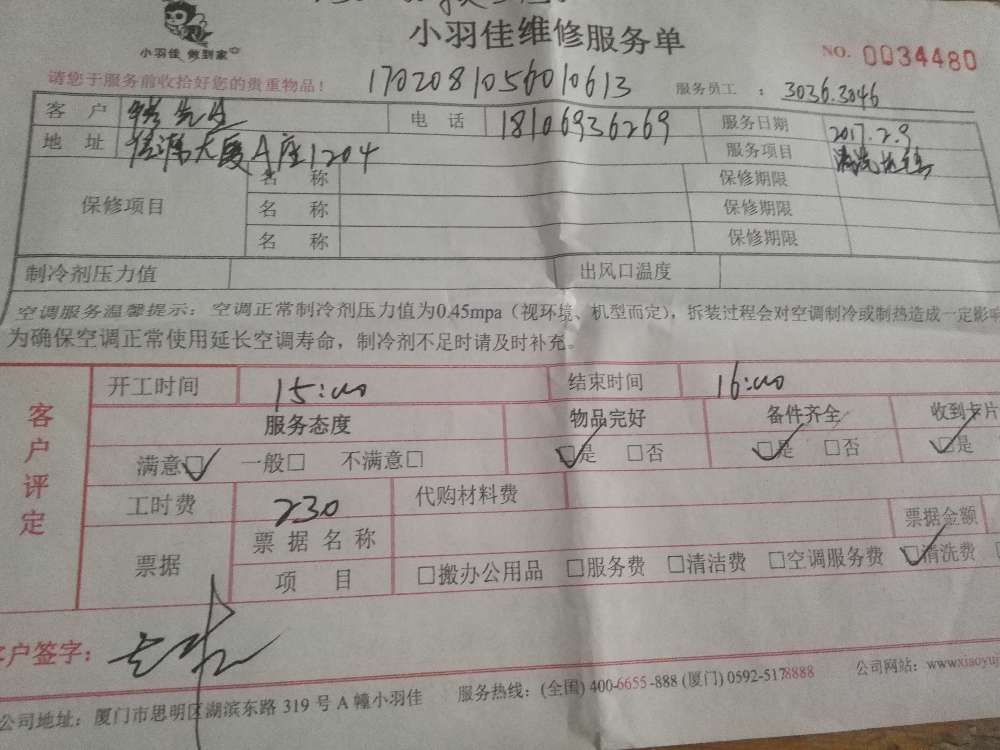 小羽佳 做到家
小羽佳维修服务单
NO. 0034480
请您于服务前收拾好您的贵重物品！
1702081056010613
服务员工 ： 3036.3046
客户 先生 电话 18106936269 服务日期 2017.2.9
地址 信源大厦A座1204 服务项目 清洗
保修项目 名称 保修期限
名称 保修期限
名称 保修期限
制冷剂压力值 出风口温度
空调服务温馨提示：空调正常制冷剂压力值为0.45mpa（视环境、机型而定），拆装过程会对空调制冷或制热造成一定影响
为确保空调正常使用延长空调寿命，制冷剂不足时请及时补充。
客户评定
开工时间 15:00 结束时间 16:00
服务态度 物品完好 备件齐全 收到卡片
满意□ 一般□ 不满意□ □是 □否 □是 □否 □是
工时费 230 代购材料费
票据 票据名称 票据金额
项目 □搬办公用品 □服务费 □清洁费 □空调服务费 □清洗费
客户签字：
公司地址：厦门市思明区湖滨东路 319 号 A 幢小羽佳 服务热线：(全国) 400-6655-888 (厦门) 0592-5178888 公司网站：www.xiaoyuj